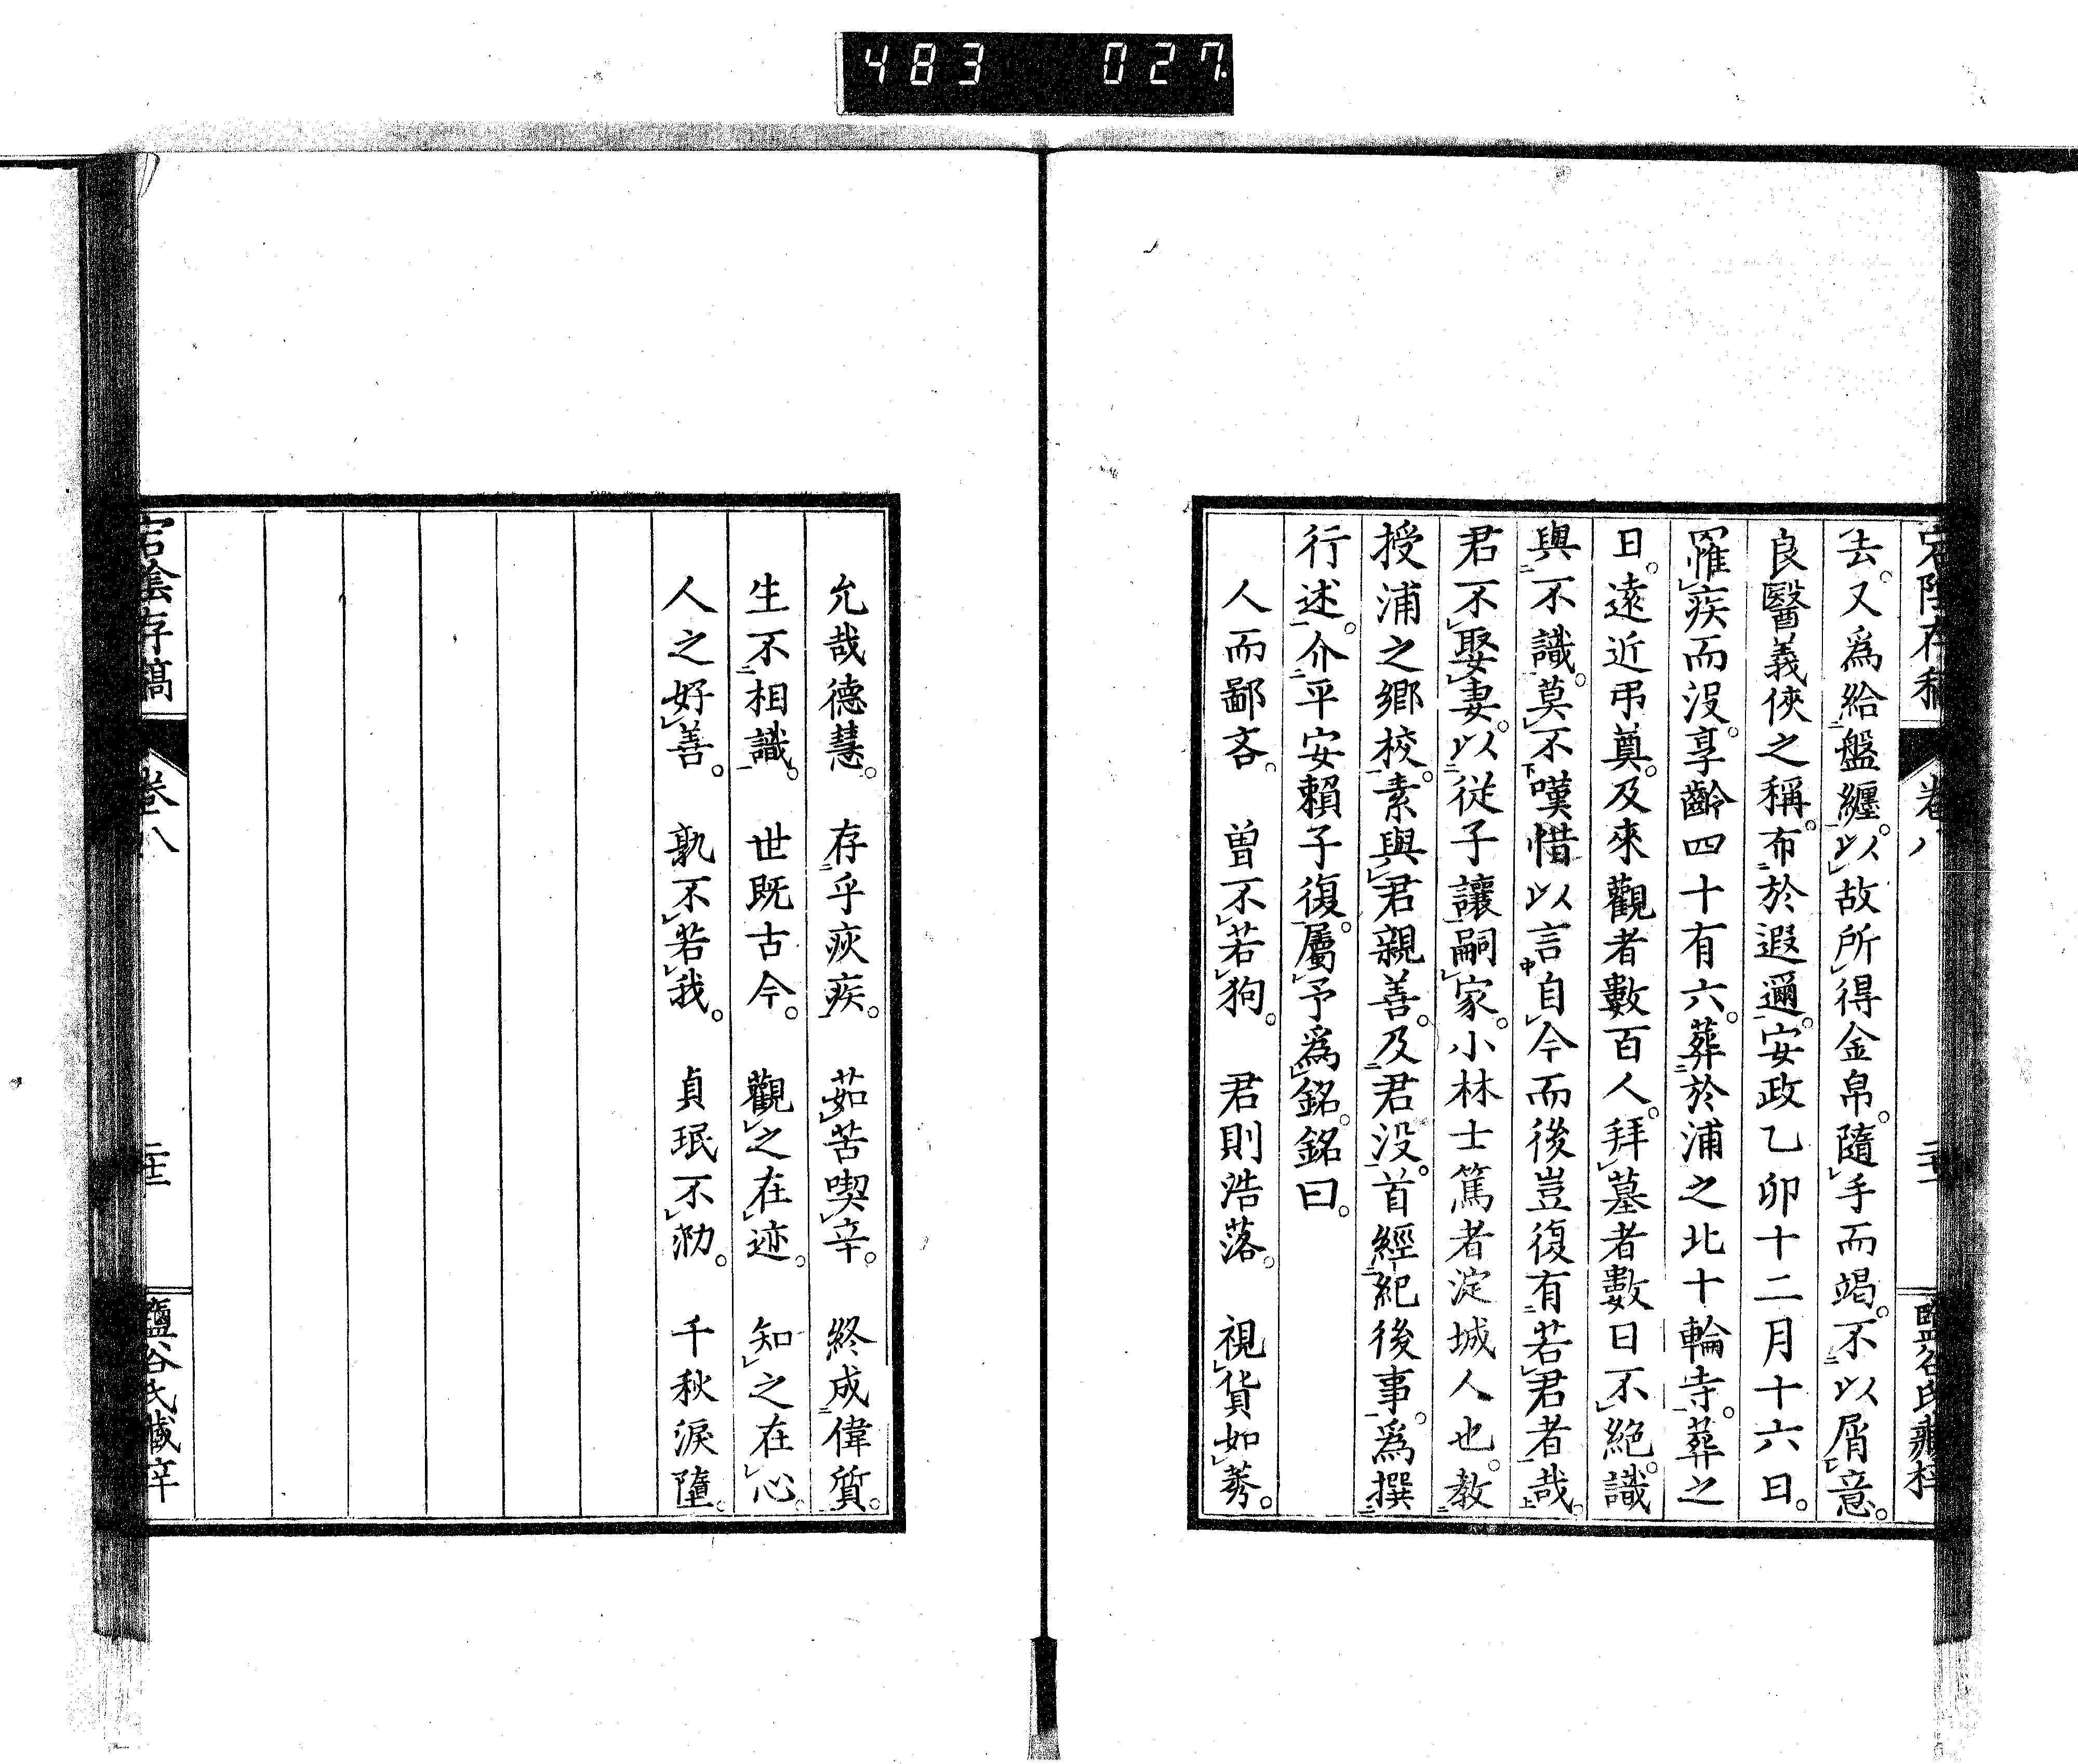 483 027
去。又爲給盤纏。以故所得金帛。隨手而竭。不以屑意。
良醫義俠之稱。布於遐邇。安政乙卯十二月十六日。
罹疾而沒。享齡四十有六。葬於浦之北十輪寺。葬之
日。遠近弔奠。及來觀者數百人。拜墓者數日不絕。識
與不識。莫不嘆惜以言自今而後豈復有若君者哉。
君不娶妻。以從子讓嗣家。小林士篤者淀城人也。教
授浦之鄉校。素與君親善。及君沒。首經紀後事。爲撰
行述。介平安賴子復。屬予爲銘。銘曰。
人而鄙吝。 曾不若狗。 君則浩落。 視貨如莠。
允哉德慧。 存乎疢疾。 茹苦喫辛。 終成偉質。
生不相識。 世既古今。 觀之在迹。 知之在心。
人之好善。 孰不若我。 貞珉不泐。 千秋淚墮。
宕陰存稿 卷八 鹽谷氏藏